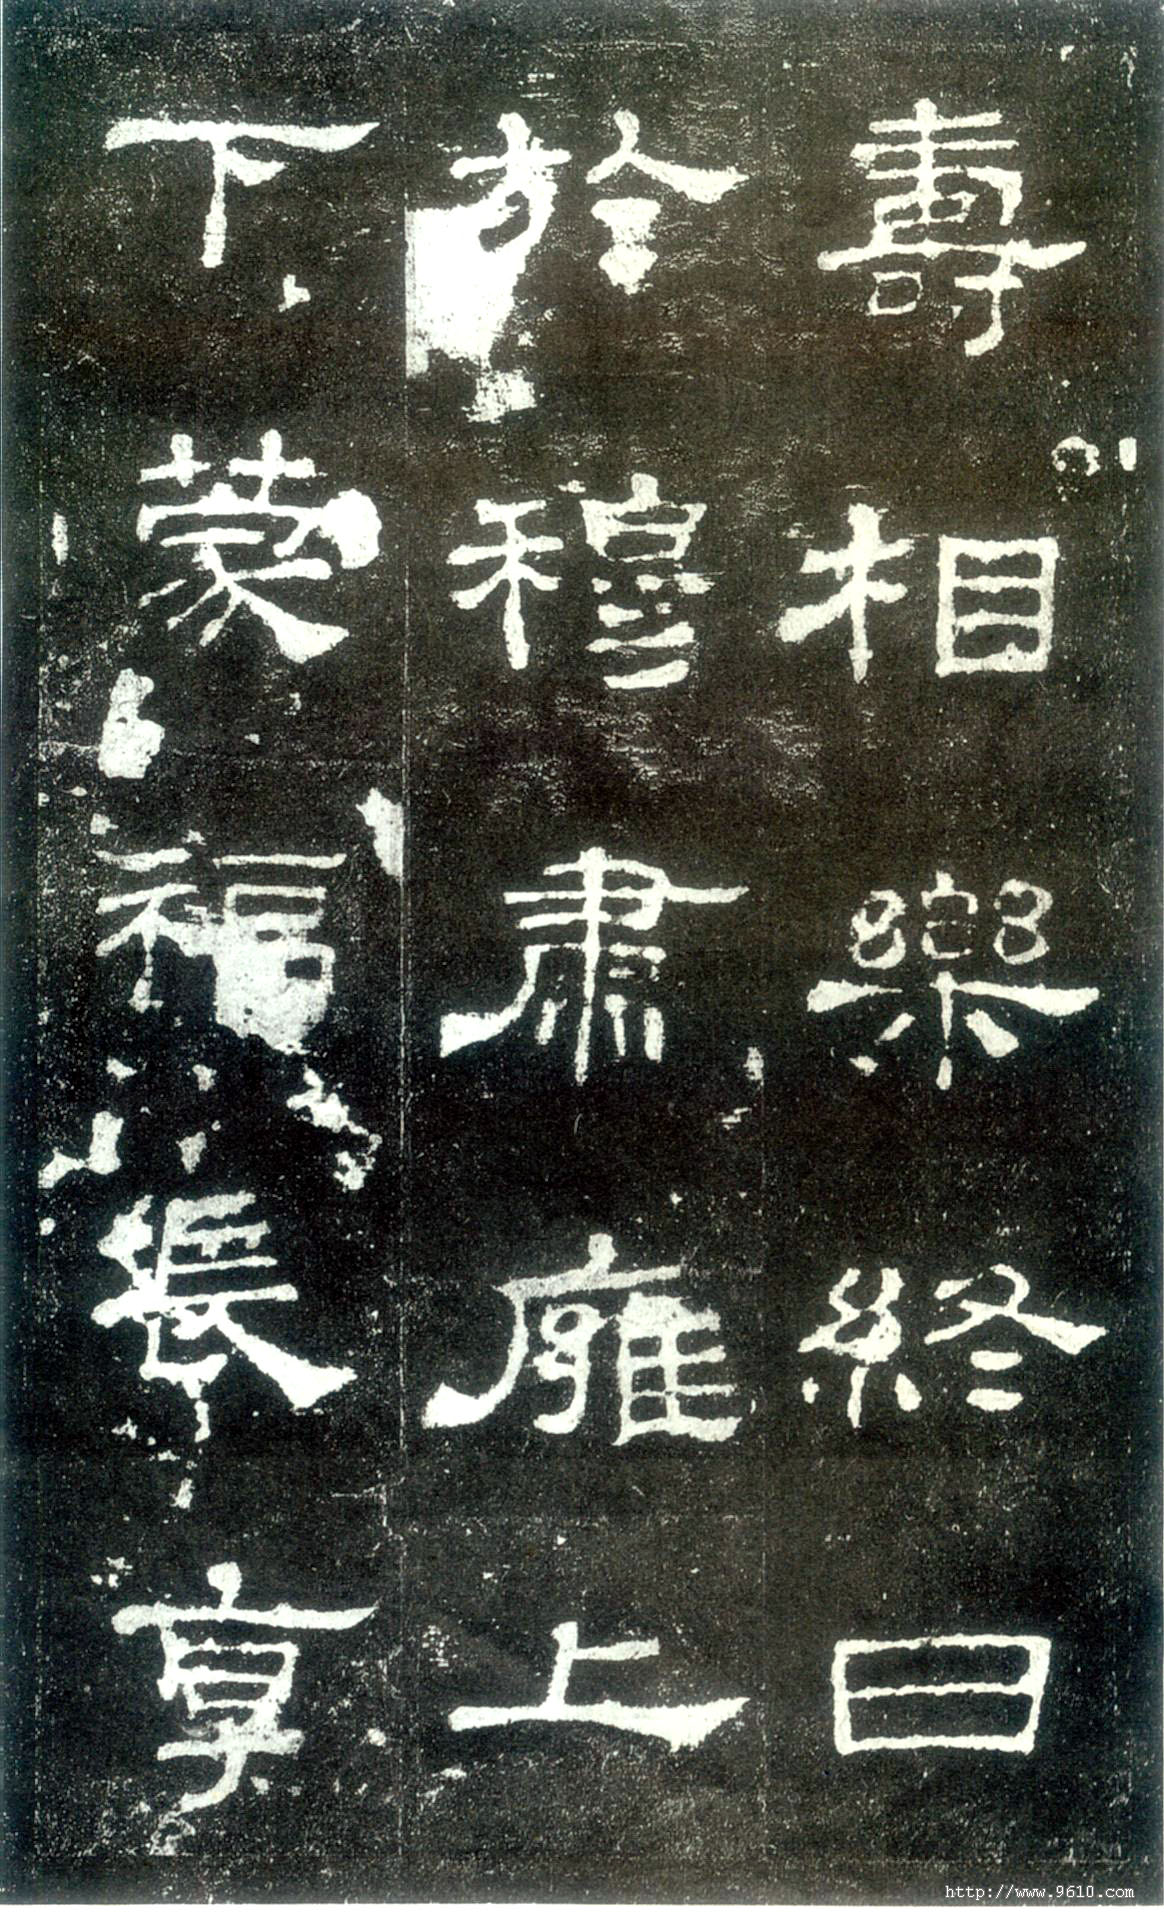 壽相樂終日
於穆肅雍上
下蒙福長享
http://www.9610.com